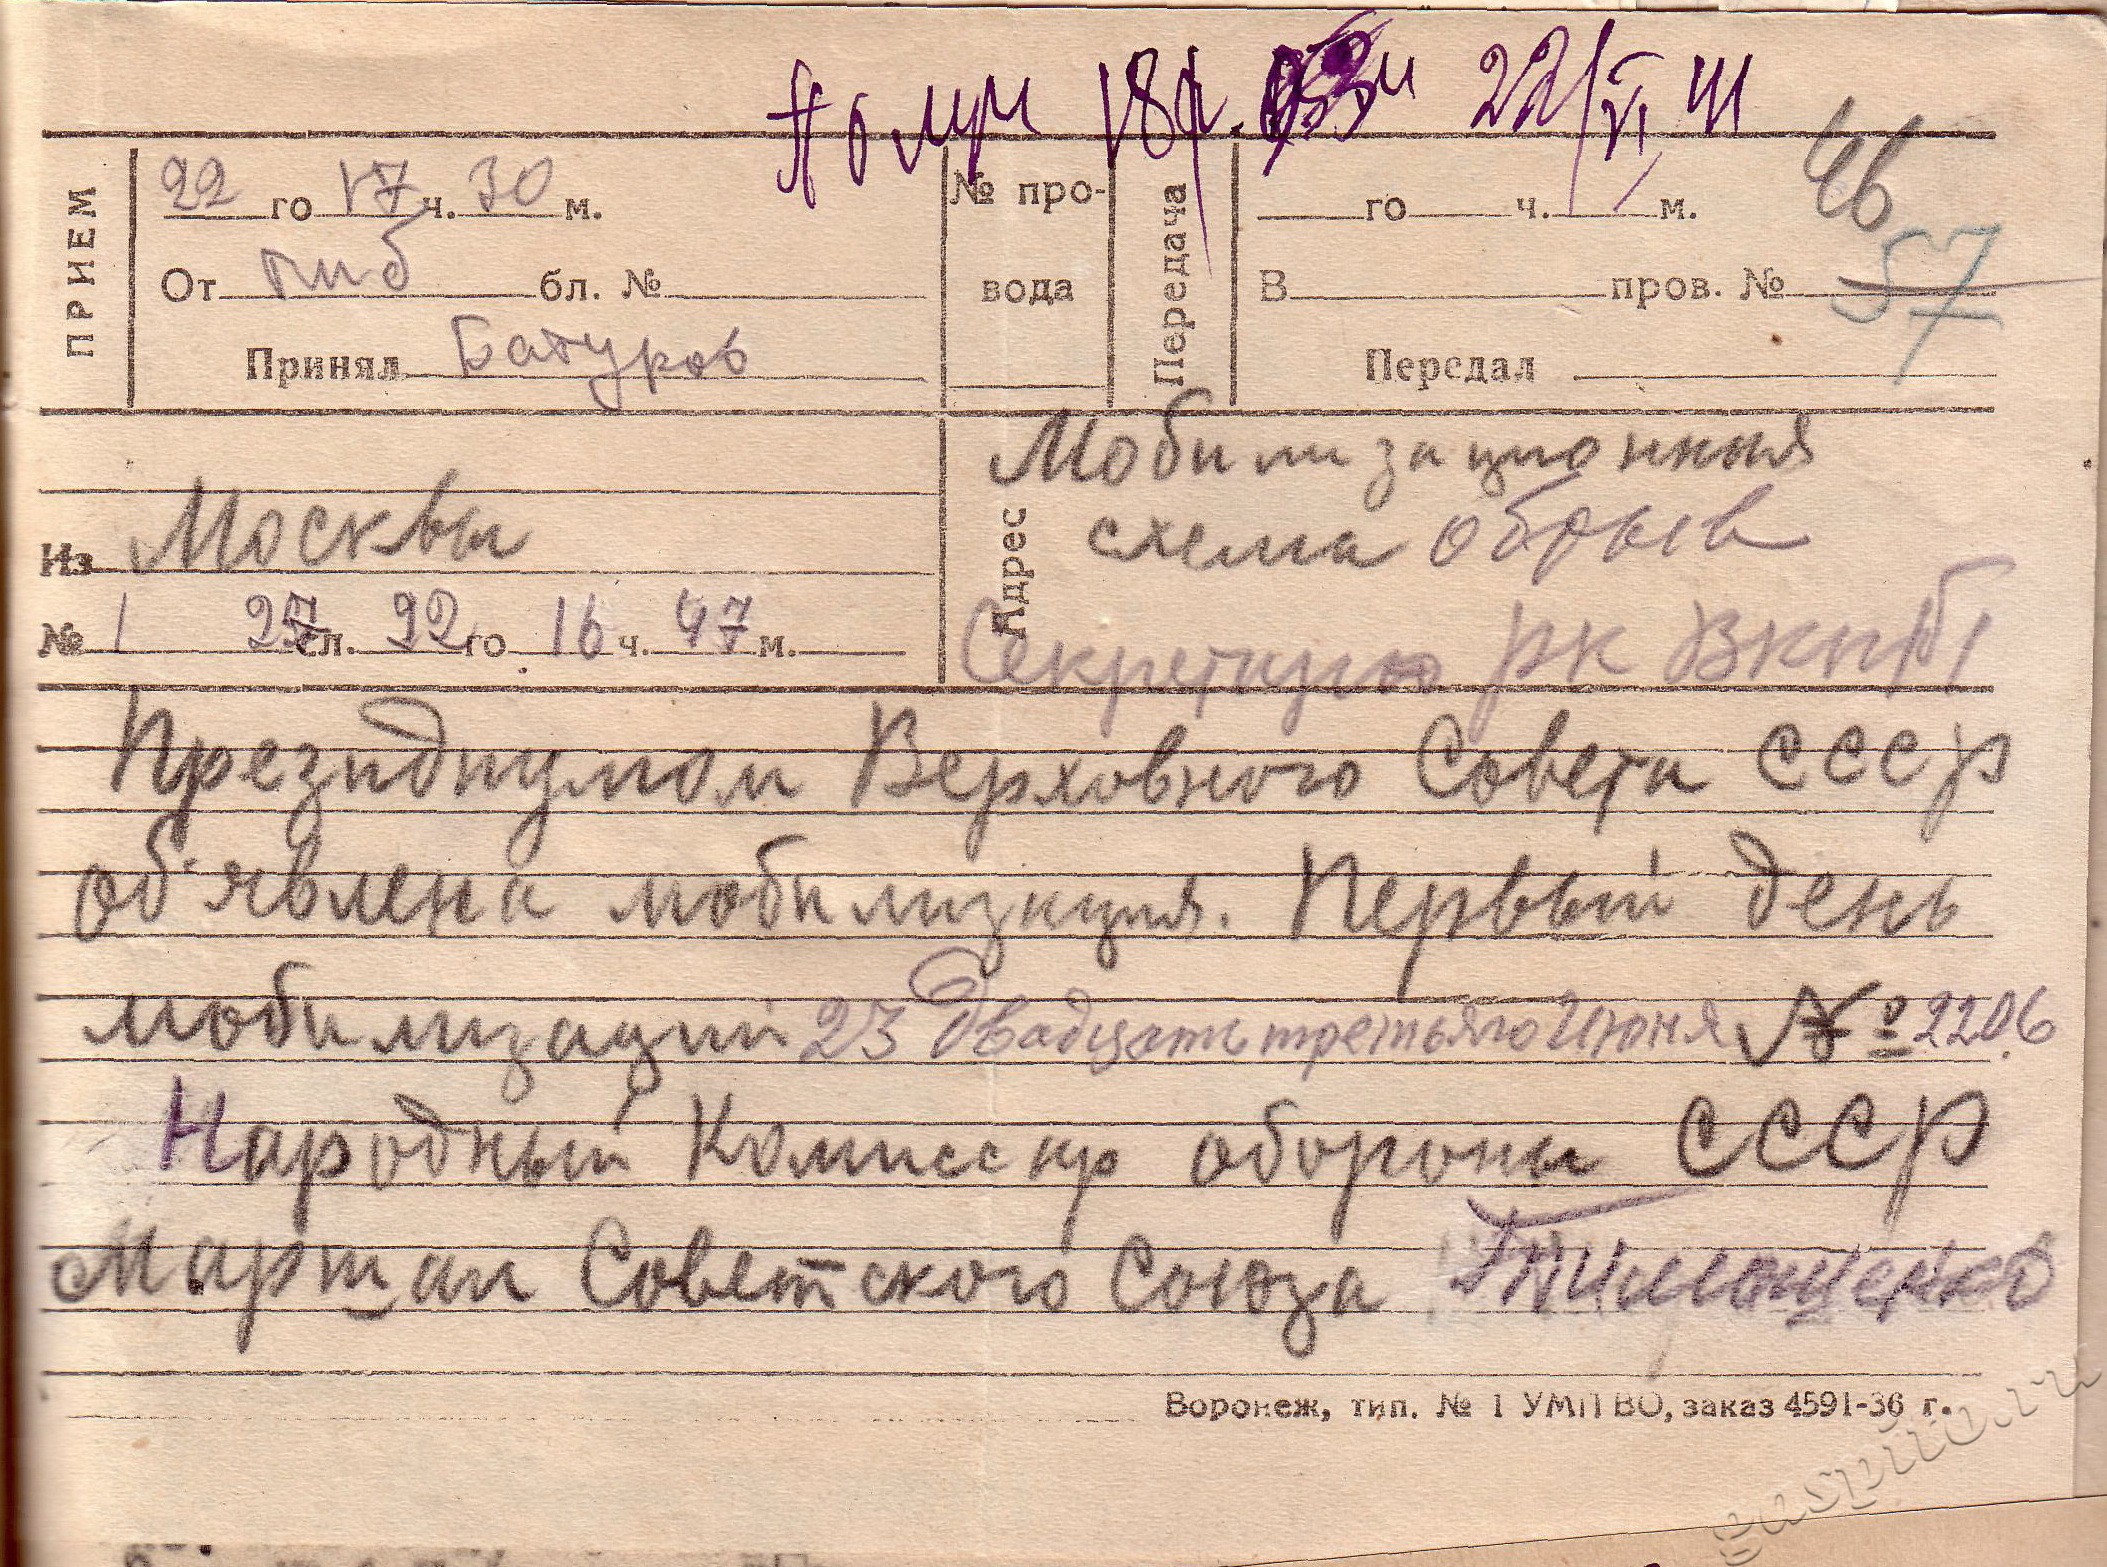 18ч. 22/VI 41
46
57
ПРИЕМ
22 го 17 ч. 30 м.
От тиб бл. №
Принял Батуров
№ про-
вода
Передача
го ч. м.
В пров. №
Передал
Из Москвы
№ 1 27 сл. 22 го 16 ч. 47 м.
Адрес
Мобилизационная
схема обрыв
Секретарю РК ВКП/б/
Президиумом Верховного Совета СССР
об'явлена мобилизация. Первый день
мобилизации 23 Двадцать третьяго Июня № 2206
Народный Комиссар обороны СССР
Маршал Советского Союза Тимошенко
Воронеж, тип. № 1 УМП ВО, заказ 4591-36 г.
gaspito.ru